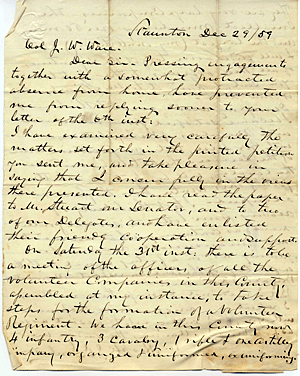 Staunton Dec 29/59
Col J. W. Ware.
Dear Sir - Pressing engagements
together with a somewhat protracted
absence from home, have prevented
me from replying sooner to your
letter of the 6th inst:
I have examined very carefully the
matters set forth in the printed petition
you sent me, and take pleasure in
saying that I concur fully in the views
there presented. I have read the paper
to Mr. Stuart our Senator, and to two
of our Delegates, and have enlisted
their friendly cooperation and support
On Saturday the 31st inst, there is to be
a meeting of the officers, of all the
Volunteer Companies in the County,
assembled at my instance, to take
steps for the formation of a Volunteer
Regiment - We have in this County now
4 infantry, 3 Cavalry, 1 rifle & one artillery
Company, organized & uniformed, or uniforming